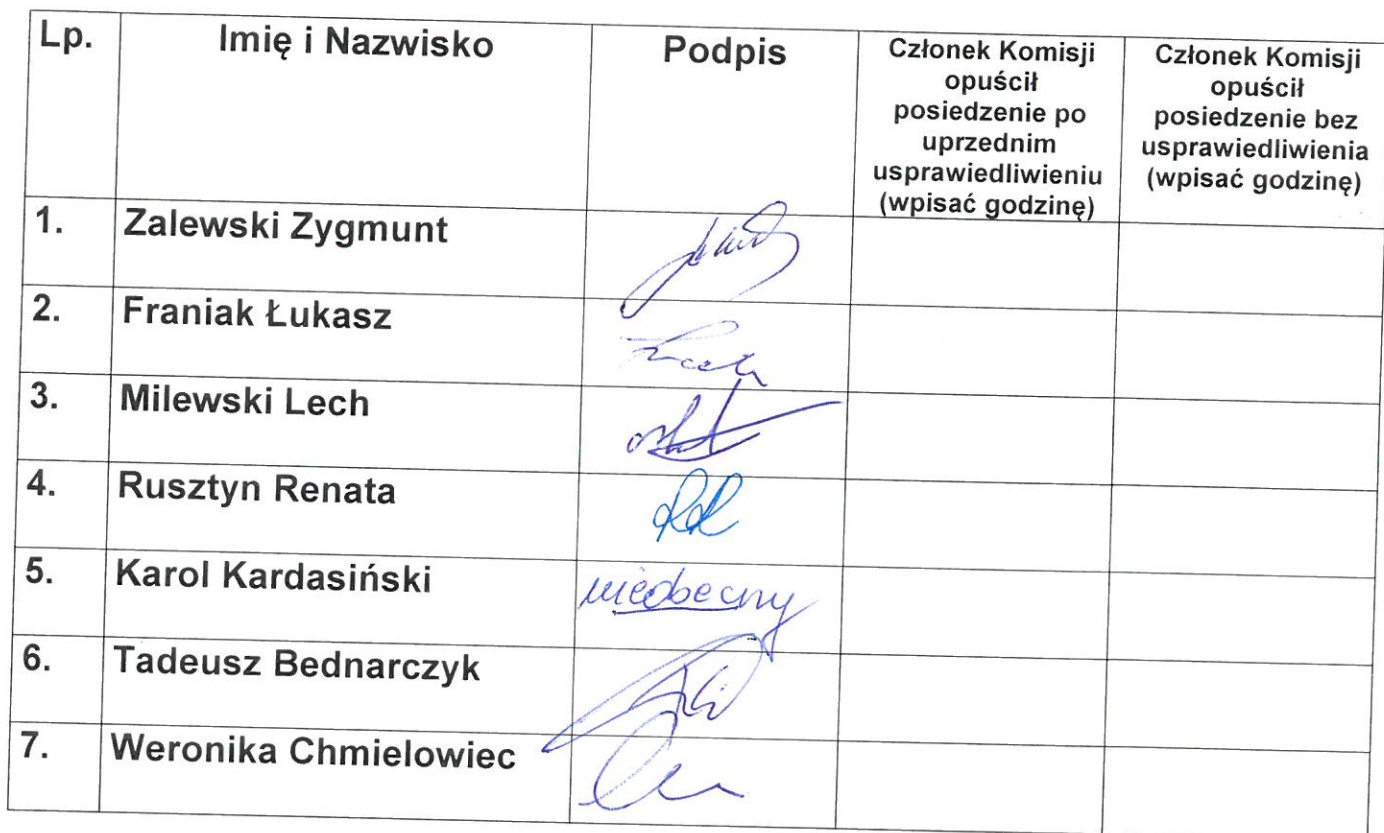 Lp.
Imię i Nazwisko
Podpis
Członek Komisji
opuścił
posiedzenie po
uprzednim
usprawiedliwieniu
(wpisać godzinę)
Członek Komisji
opuścił
posiedzenie bez
usprawiedliwienia
(wpisać godzinę)
1. Zalewski Zygmunt
2. Franiak Łukasz
3. Milewski Lech
4. Rusztyn Renata
5. Karol Kardasiński nieobecny
6. Tadeusz Bednarczyk
7. Weronika Chmielowiec